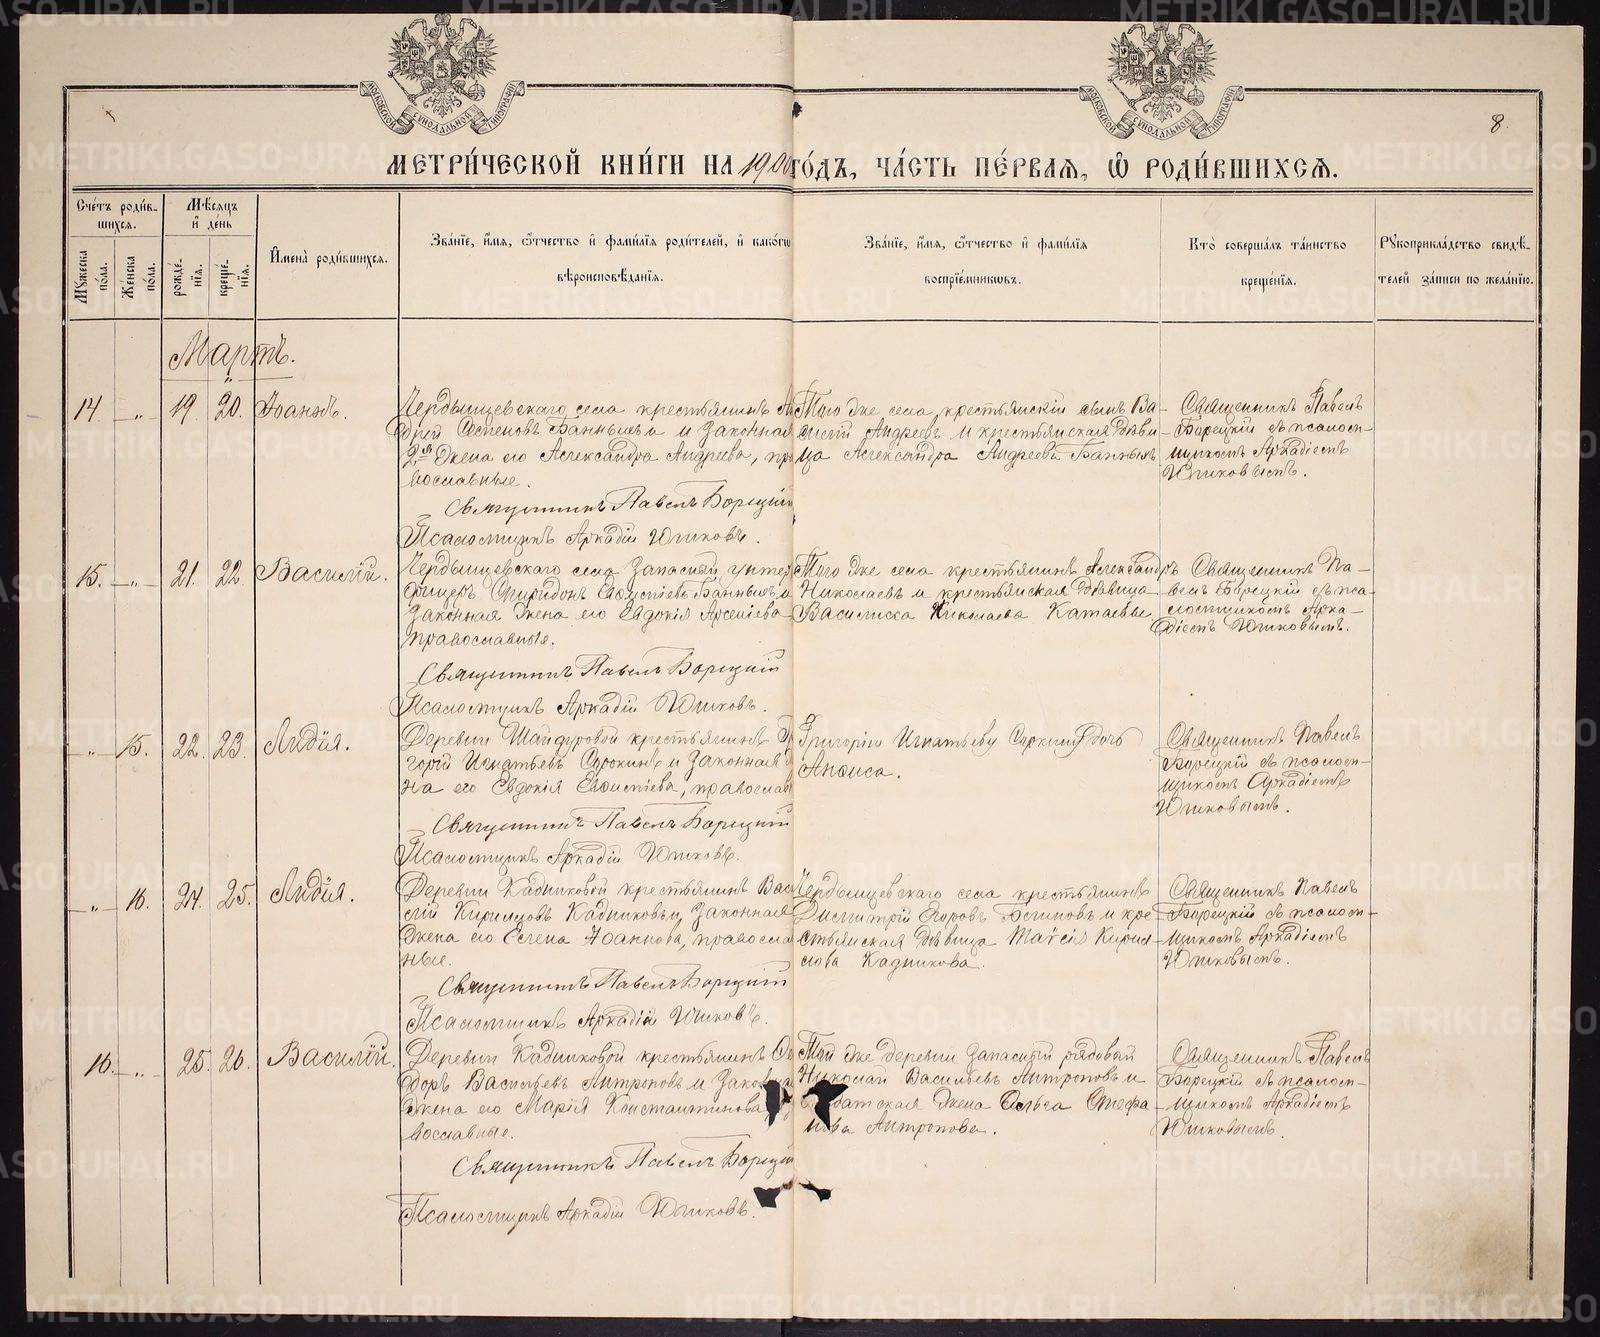 МОСКОВСКОЙ СѴНОДАЛЬНОЙ ТИПОГРАФІИ
МОСКОВСКОЙ СѴНОДАЛЬНОЙ ТИПОГРАФІИ
8.
МЕТРИ́ЧЕСКОЙ КНИ́ГИ НА 1900 ГО́ДЪ, ЧА́СТЬ ПЕ́РВАЯ, Ѡ РОДИ́ВШИХСѦ.
Сче́тъ роди́в-
шихсѧ.
Мѣ́сяцъ
и де́нь
Мꙋ́жеска по́ла.
Же́нска по́ла.
рожде́-
нїѧ.
креще́-
нїѧ.
И҆мена̀ роди́вшихсѧ.
Зва́нїе, и҆́мѧ, ѻ҆́тчество и҆ фами́лїѧ роди́телей, и҆ како́гѡ
вѣроисповѣ́данїѧ.
Зва́нїе, и҆́мѧ, ѻ҆́тчество и҆ фами́лїѧ
воспрїе́мникѡвъ.
Кто̀ соверша́лъ та́инство
креще́нїѧ.
Рꙋкоприкла́дство свидѣ́-
телей за́писи по жела́нїю.
Мартъ.
14 — „ 19. 20. Іоаннъ.
Чердынцевскаго села крестьянинъ Ан
дрей Степановъ Банныхъ и законная
2я жена его Александра Андреева, пра
вославные.
Священникъ Павелъ Борецкій
Псаломщикъ Аркадій Юшковъ.
Того же села крестьянскій сынъ Ва-
силій Андреевъ и крестьянская дѣви-
ца Александра Андреева Банныхъ
Священникъ Павелъ
Борецкій съ псалом-
щикомъ Аркадіемъ
Юшковымъ.
15. — „ 21. 22. Василій.
Чердынцевскаго села запасный унтер
фицеръ Спиридонъ Евсигніевъ Банныхъ и
законная жена его Евдокія Арсеніева
православные.
Священникъ Павелъ Борецкій
Псаломщикъ Аркадій Юшковъ.
Того же села крестьянинъ Александръ
Николаевъ и крестьянская дѣвица
Василисса Николаева Катаевы
Священникъ Па-
велъ Борецкій съ пса-
ломщикомъ Арка-
діемъ Юшковымъ.
„ 15. 22. 23. Лидія.
Деревни Шайдуровой крестьянинъ Гри
горій Игнатьевъ Сорокинъ и законная
на его Евдокія, православ
Священникъ Павелъ Борецкій
Псаломщикъ Аркадій Юшковъ.
Григорію Игнатьеву дочь
Аниса.
Священникъ Павелъ
Борецкій съ псалом-
щикомъ Аркадіемъ
Юшковымъ.
„ 16. 24. 25. Лидія.
Деревни Кадниковой крестьянинъ Васи
лій Кирилловъ Кадниковъ и законная
жена его Елена Іоаннова, правосла
ные.
Священникъ Павелъ Борецкій
Псаломщикъ Аркадій Юшковъ.
Чердынцевскаго села крестьянинъ
Димитрій Егоровъ и кре-
стьянская дѣвица Таисія Кирил-
лова Кадникова.
Священникъ Павелъ
Борецкій съ псалом-
щикомъ Аркадіемъ
Юшковымъ.
16. — „ 25. 26. Василій.
Деревни Кадниковой крестьянинъ Ѳе
доръ Васильевъ Антроповъ и законная
жена его Марія Константинова
вославные.
Священникъ Павелъ Борецкій
Псаломщикъ Аркадій Юшковъ.
Той же деревни запасный рядовый
Николай Васильевъ Антроповъ и
солдатская жена Ольга Стефа-
нова Антропова.
Священникъ Павелъ
Борецкій съ псалом-
щикомъ Аркадіемъ
Юшковымъ.